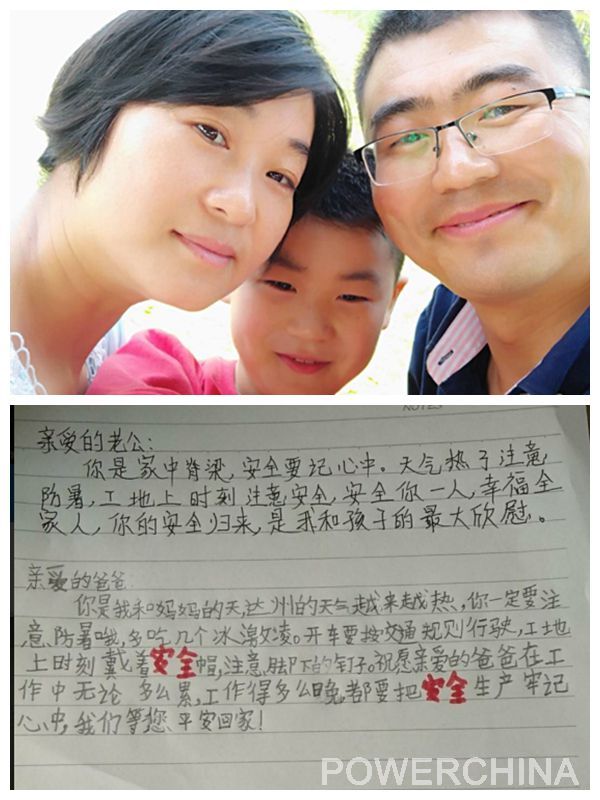 NOTES
亲爱的老公:
你是家中脊梁,安全要记心中。天气热了注意
防暑,工地上时刻注意安全,安全你一人,幸福全
家人,你的安全归来,是我和孩子的最大欣慰。
亲爱的爸爸:
你是我和妈妈的天,达州的天气越来越热,你一定要注
意防暑哦,多吃几个冰激凌。开车要按交通规则行驶,工地
上时刻戴着安全帽,注意脚下的钉子。祝愿亲爱的爸爸在工
作中无论多么累,工作得多么晚,都要把安全生产牢记
心中,我们等您平安回家!
POWERCHINA